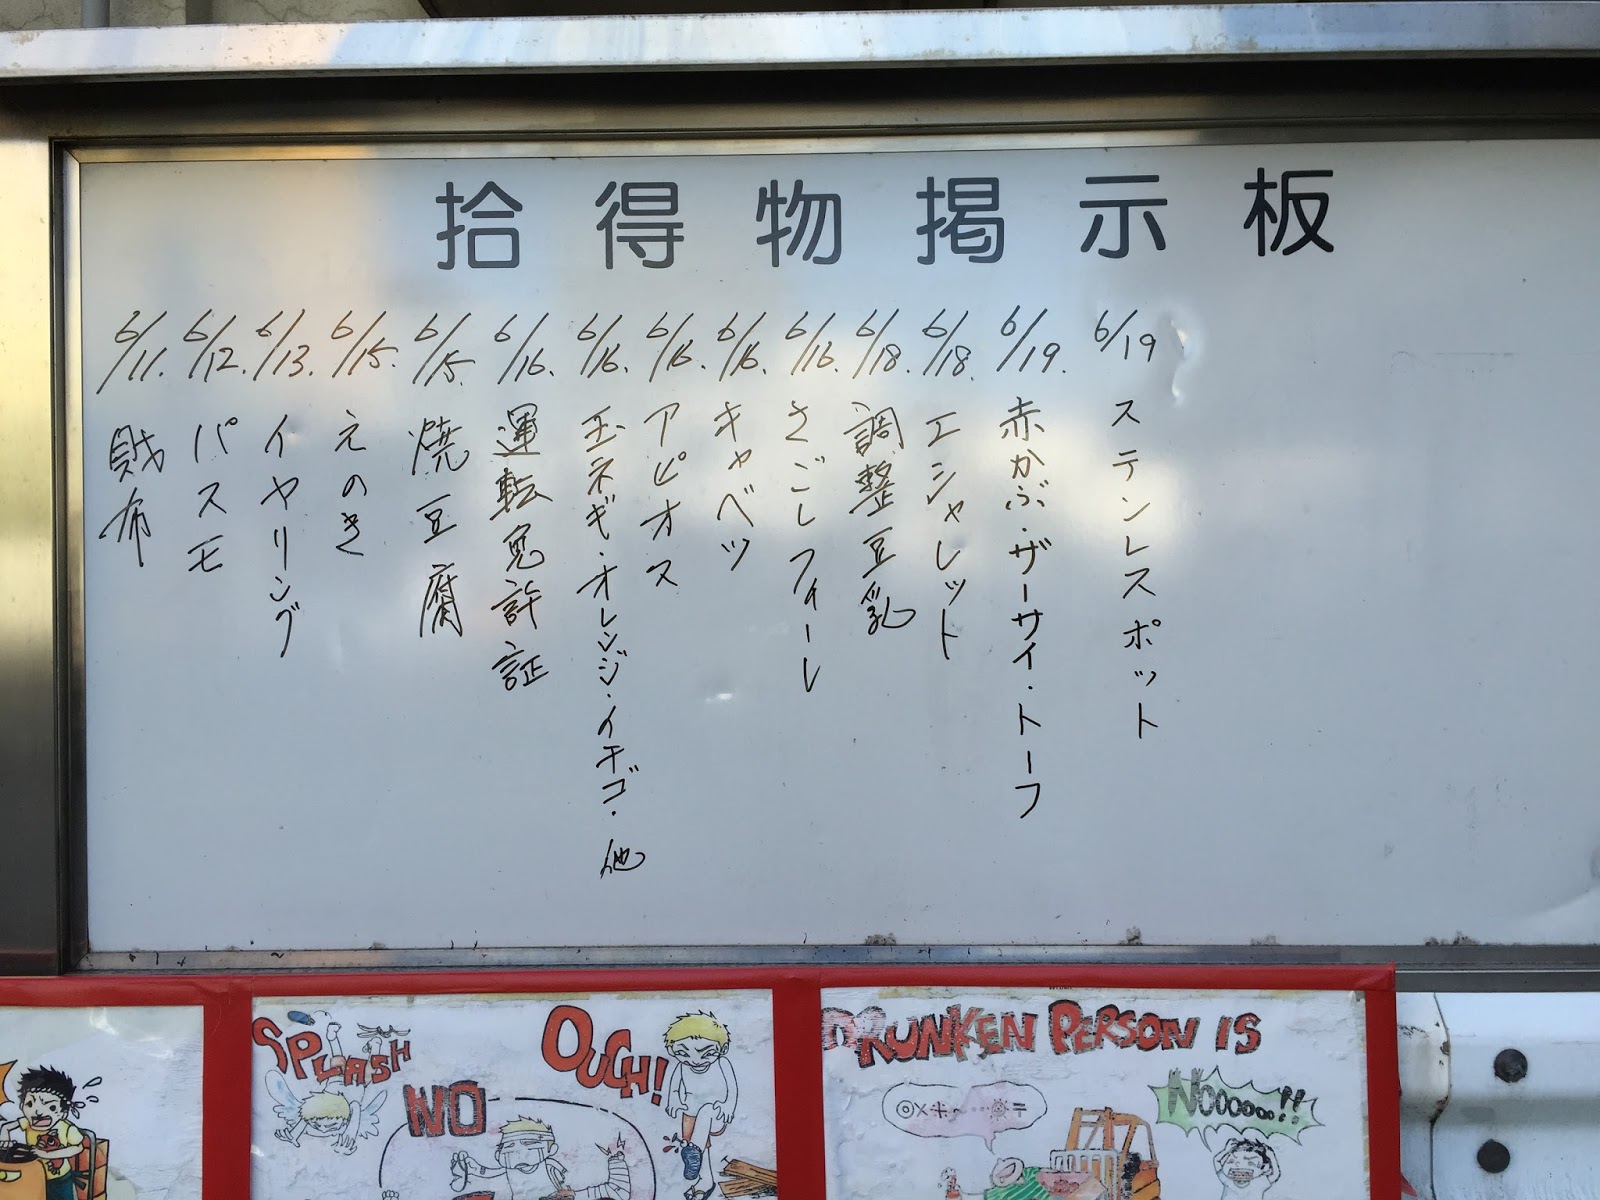 拾得物掲示板
6/11. 財布
6/12. パスモ
6/13. イヤリング
6/15. えのき
6/15. 焼豆腐
6/16. 運転免許証
6/16. 玉ネギ・オレンジ・イチゴ・他
6/16. アピオス
6/16. キャベツ
6/16. さごしフィーレ
6/18. 調整豆乳
6/18. エシャレット
6/19. 赤かぶ・ザーサイ・トーフ
6/19 ステンレスポット
SPLASH
NO
OUCH!
DRUNKEN PERSON IS
NOooooo..!!